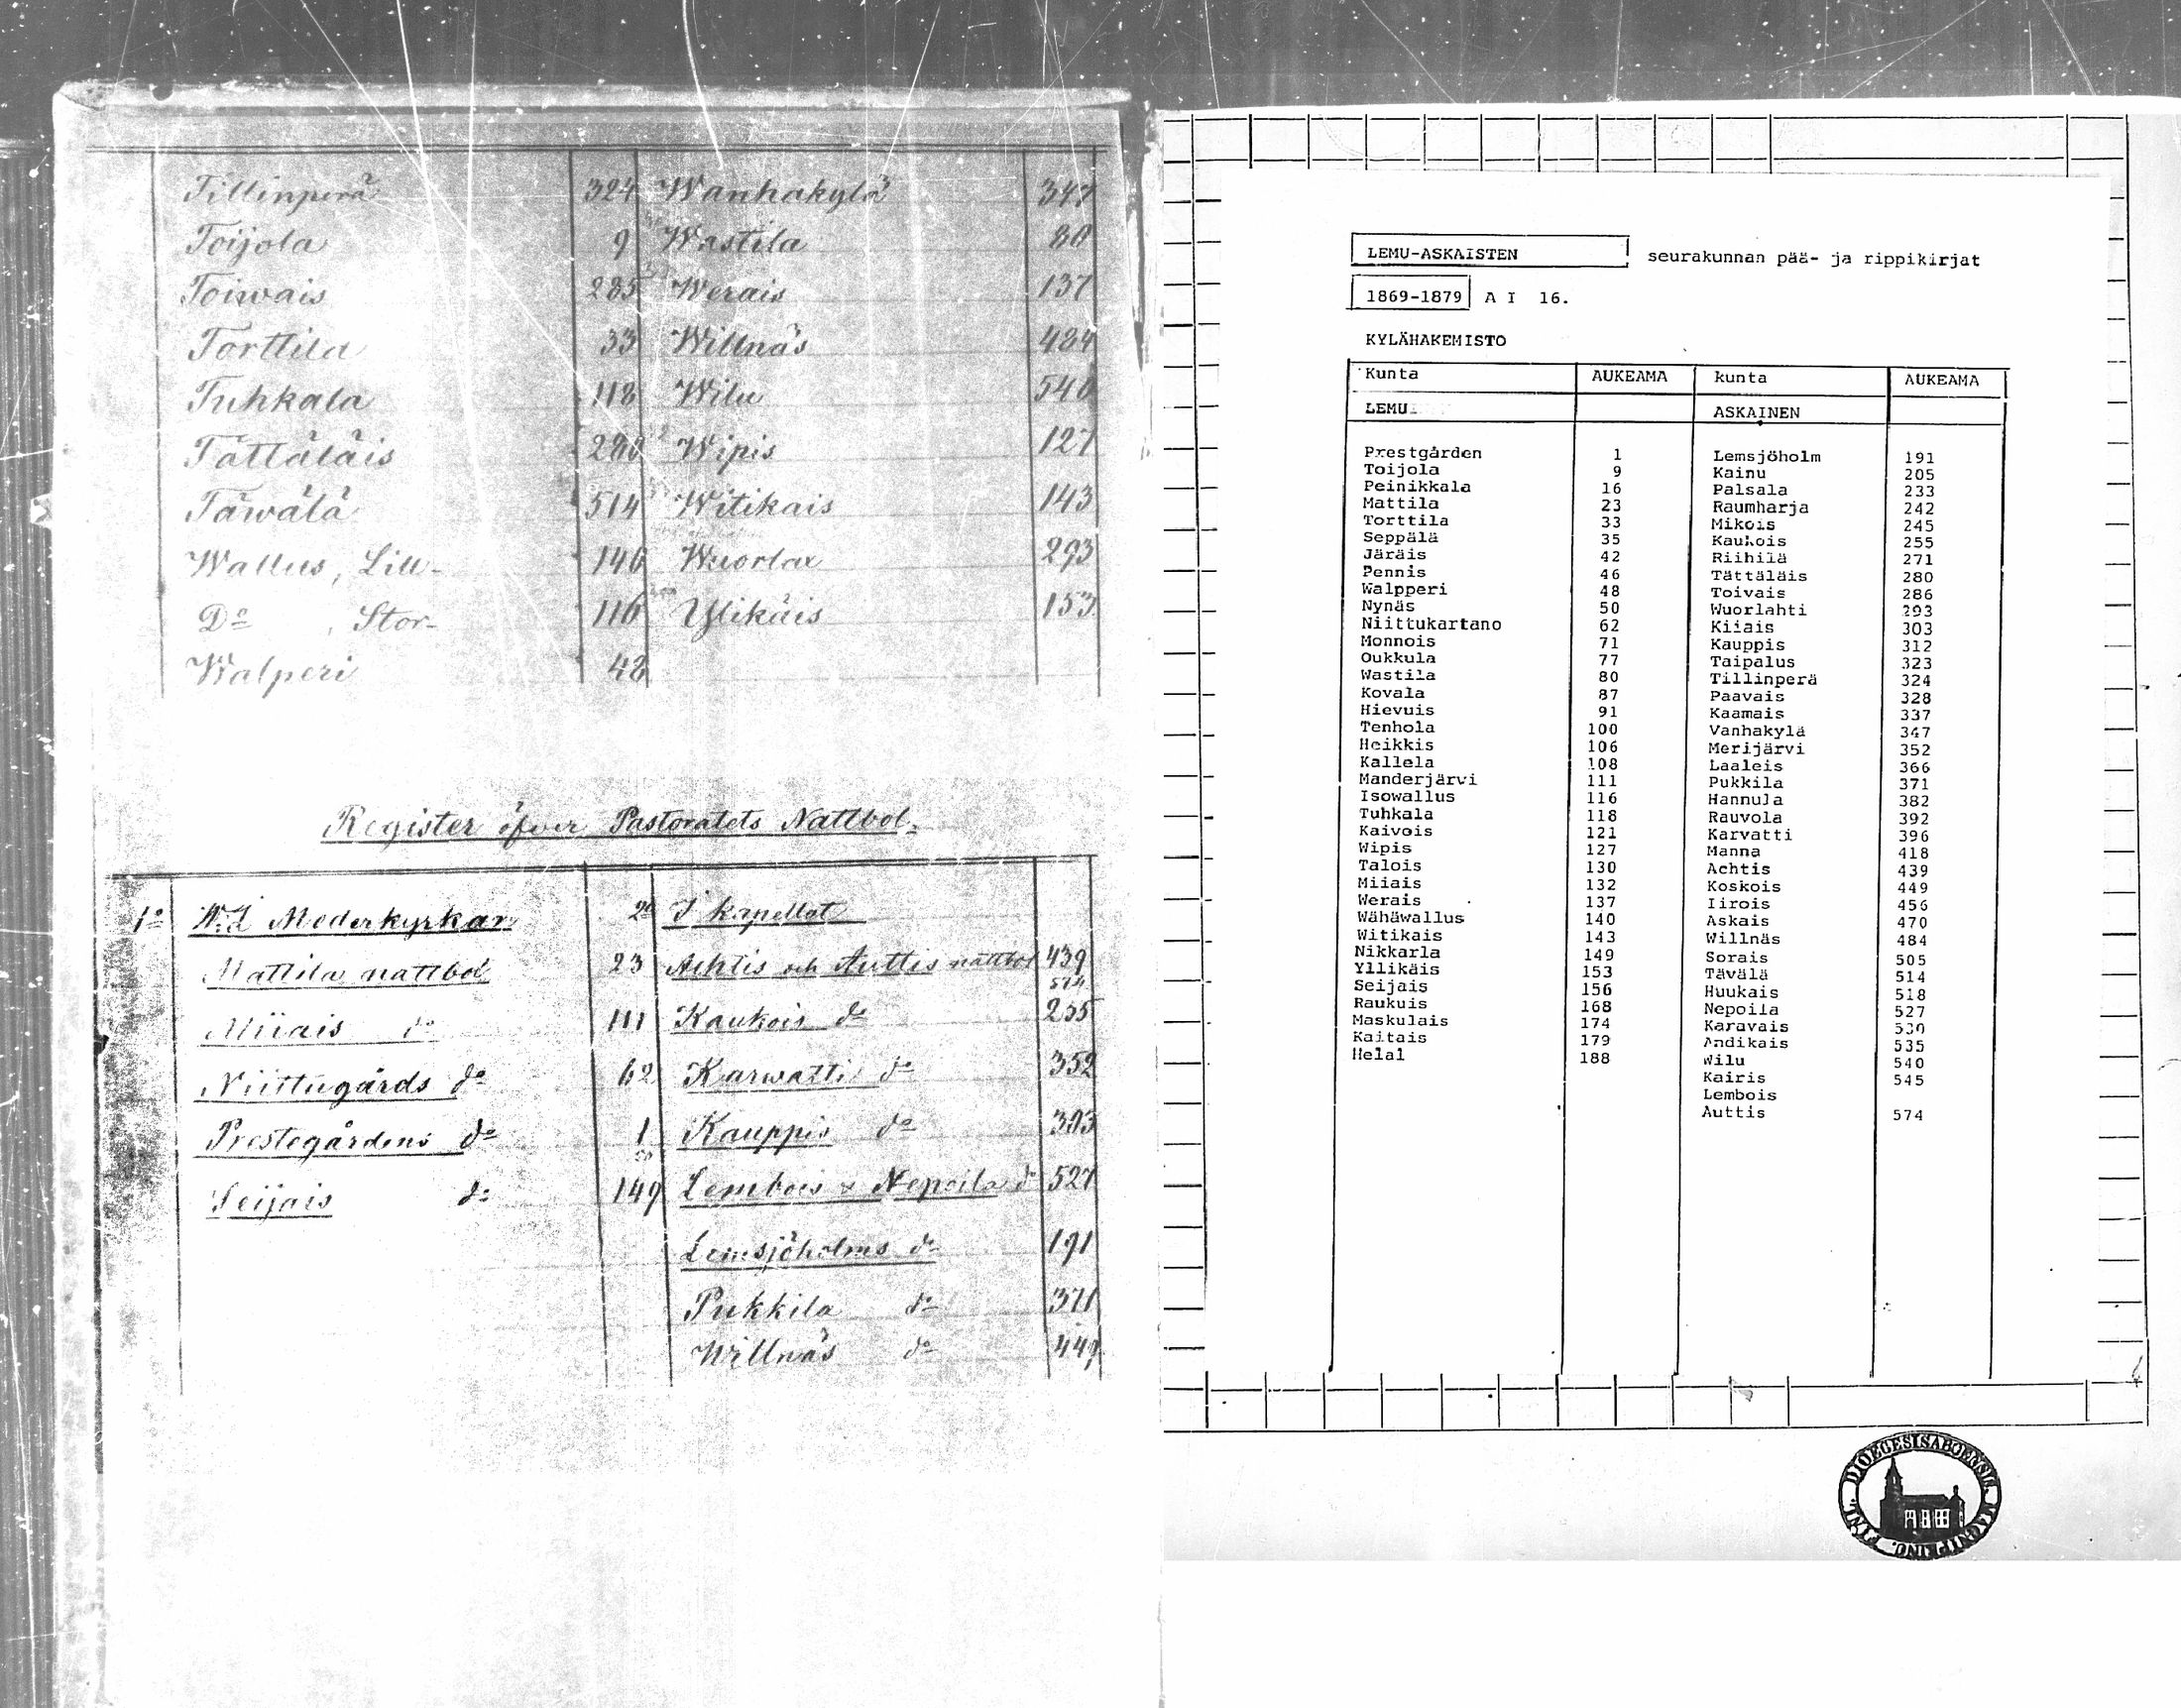 Tillinperä 324 Wanhakylä 347
Toijola 9 Wastila 80
Toiwais 285 Werais 137
Torttila 33 Willnäs 484
Tuhkala 118 Wilu 540
Tättäläis 280 Wipis 127
Täwälä 514 Witikais 143
Wallus, Lill- 146 Wuorlax 293
Do , Stor- 116 Ylikäis 153
Walperi 48
Register öfver Pastoratets Nattbol.
1o Moderkyrkan 2o I kapellat
Mattila nattbol 23 Achtis och Auttis nattbol 439
574
Miiais do 111 Kaukois do 255
Niittugårds do 62 Karwatti do 352
Prestegårdens do 1 Kauppis do 303
50
Seijais do 149 Lembois & Nepoila do 527
Lemsjöholms do 191
Pukkila do 371
Willnäs do 449
LEMU-ASKAISTEN seurakunnan pää- ja rippikirjat
1869-1879 A I 16.
KYLÄHAKEMISTO
Kunta AUKEAMA kunta AUKEAMA
LEMU ASKAINEN
Prestgården 1 Lemsjöholm 191
Toijola 9 Kainu 205
Peinikkala 16 Palsala 233
Mattila 23 Raumharja 242
Torttila 33 Mikois 245
Seppälä 35 Kaukois 255
Järäis 42 Riihilä 271
Pennis 46 Tättäläis 280
Walpperi 48 Toivais 286
Nynäs 50 Wuorlahti 293
Niittukartano 62 Kiiais 303
Monnois 71 Kauppis 312
Oukkula 77 Taipalus 323
Wastila 80 Tillinperä 324
Kovala 87 Paavais 328
Hievuis 91 Kaamais 337
Tenhola 100 Vanhakylä 347
Heikkis 106 Merijärvi 352
Kallela 108 Laaleis 366
Manderjärvi 111 Pukkila 371
Isowallus 116 Hannula 382
Tuhkala 118 Rauvola 392
Kaivois 121 Karvatti 396
Wipis 127 Manna 418
Talois 130 Achtis 439
Miiais 132 Koskois 449
Werais 137 Iirois 456
Wähäwallus 140 Askais 470
Witikais 143 Willnäs 484
Nikkarla 149 Sorais 505
Yllikäis 153 Tävälä 514
Seijais 156 Huukais 518
Raukuis 168 Nepoila 527
Maskulais 174 Karavais 530
Kaitais 179 Andikais 535
Helal 188 Wilu 540
Kairis 545
Lembois
Auttis 574
DIOECESIS ABOENSIS. MAGNI PRINC. FINL.